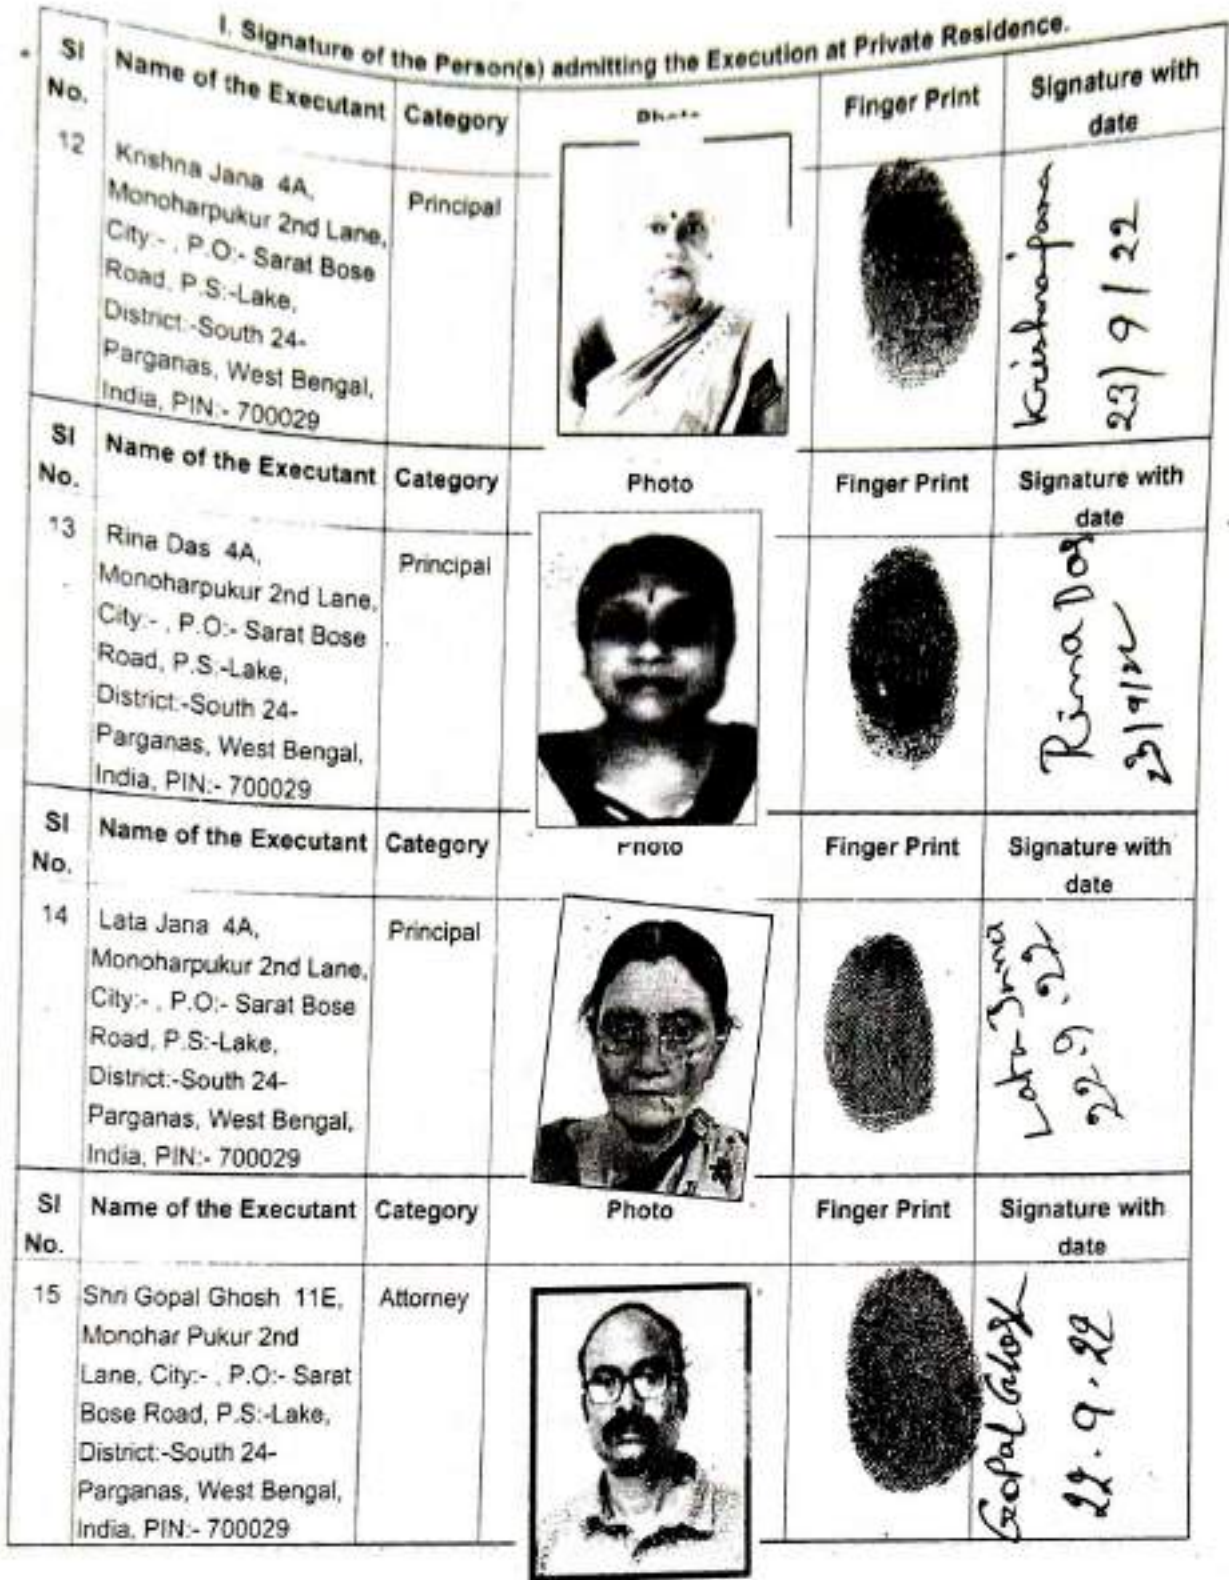 I. Signature of the Person(s) admitting the Execution at Private Residence.
Sl No. Name of the Executant Category Photo Finger Print Signature with date
12 Krishna Jana 4A,
Monoharpukur 2nd Lane,
City:- , P.O:- Sarat Bose
Road, P.S:-Lake,
District:-South 24-
Parganas, West Bengal,
India, PIN:- 700029
Principal
Krishna Jana
23/9/22
Sl No. Name of the Executant Category Photo Finger Print Signature with date
13 Rina Das 4A,
Monoharpukur 2nd Lane,
City:- , P.O:- Sarat Bose
Road, P.S:-Lake,
District:-South 24-
Parganas, West Bengal,
India, PIN:- 700029
Principal
Rina Das
23/9/22
Sl No. Name of the Executant Category Photo Finger Print Signature with date
14 Lata Jana 4A,
Monoharpukur 2nd Lane,
City:- , P.O:- Sarat Bose
Road, P.S:-Lake,
District:-South 24-
Parganas, West Bengal,
India, PIN:- 700029
Principal
Lata Jana
22.9.22
Sl No. Name of the Executant Category Photo Finger Print Signature with date
15 Shri Gopal Ghosh 11E,
Monohar Pukur 2nd
Lane, City:- , P.O:- Sarat
Bose Road, P.S:-Lake,
District:-South 24-
Parganas, West Bengal,
India, PIN:- 700029
Attorney
Gopal Ghosh
22.9.22